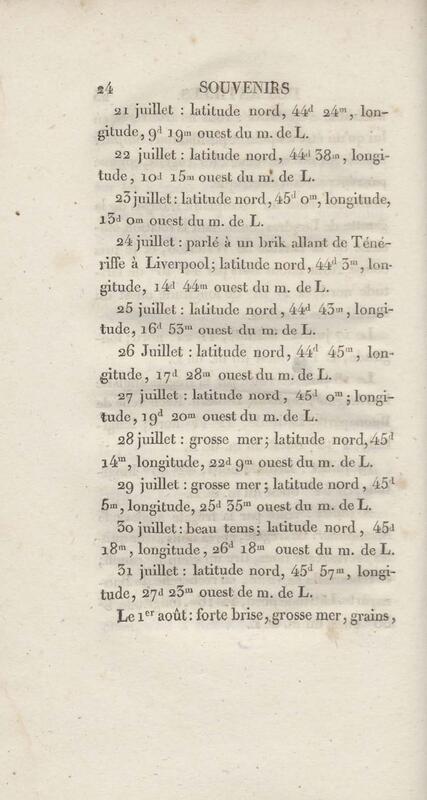 24 SOUVENIRS
21 juillet : latitude nord, 44d 24m, lon-
gitude, 9d 19m ouest du m. de L.
22 juillet : latitude nord, 44d 38m, longi-
tude, 10d 15m ouest du m. de L.
23 juillet : latitude nord, 45d 0m, longitude,
13d 0m ouest du m. de L.
24 juillet : parlé à un brik allant de Téné-
riffe à Liverpool; latitude nord, 44d 3m, lon-
gitude, 14d 44m ouest du m. de L.
25 juillet : latitude nord, 44d 43m, longi-
tude, 16d 53m ouest du m. de L.
26 Juillet : latitude nord, 44d 45m, lon-
gitude, 17d 28m ouest du m. de L.
27 juillet : latitude nord, 45d 0m; longi-
tude, 19d 20m ouest du m. de L.
28 juillet : grosse mer; latitude nord, 45d
14m, longitude, 22d 9m ouest du m. de L.
29 juillet : grosse mer; latitude nord, 45d
5m, longitude, 25d 35m ouest du m. de L.
30 juillet : beau tems; latitude nord, 45d
18m, longitude, 26d 18m ouest du m. de L.
31 juillet : latitude nord, 45d 57m, longi-
tude, 27d 23m ouest de m. de L.
Le 1er août : forte brise, grosse mer, grains,